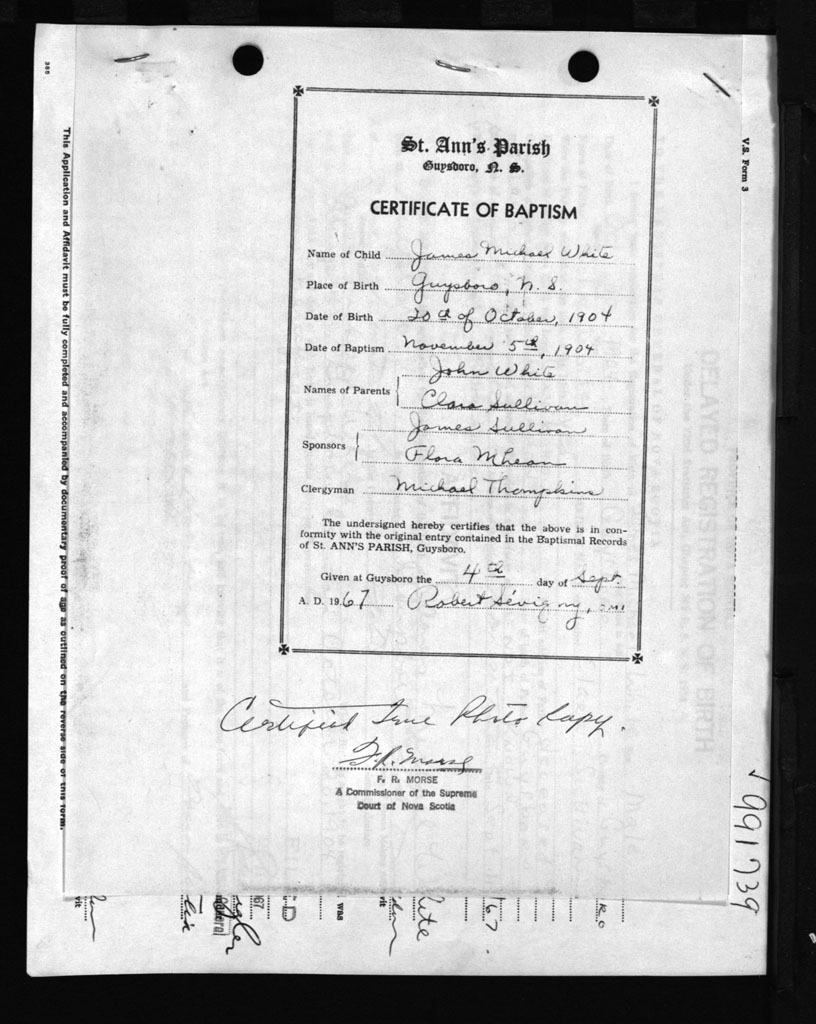 St. Ann's Parish
Guysboro, N. S.
CERTIFICATE OF BAPTISM
Name of Child James Michael White
Place of Birth Guysboro, N. S.
Date of Birth 20th of October, 1904
Date of Baptism November 5th, 1904
John White
Names of Parents
Clara Sullivan
James Sullivan
Sponsors
Flora McLean
Clergyman Michael Thompkins
The undersigned hereby certifies that the above is in con-
formity with the original entry contained in the Baptismal Records
of St. ANN'S PARISH, Guysboro.
Given at Guysboro the 4th day of Sept.
A. D. 1967 Robert Sévigny, OMI
Certified True Photo Copy.
F. R. Morse
F. R. MORSE
A Commissioner of the Supreme
Court of Nova Scotia
386
This Application and Affidavit must be fully completed and accompanied by documentary proof of age as outlined on the reverse side of this form.
V.S. Form 3
DELAYED REGISTRATION OF BIRTH
991739
67
was
967